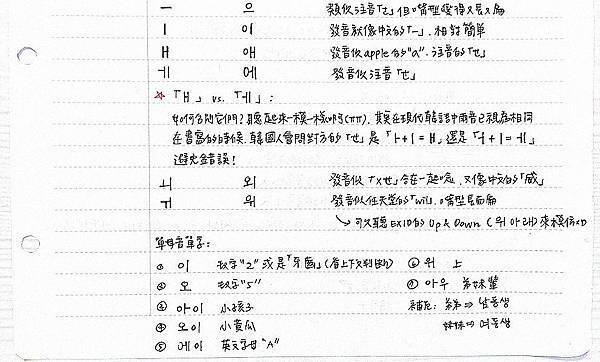 ㅡ 으 類似注音「ㄜ」但嘴型變得又長又扁
ㅣ 이 發音就像中文的「一」，相對簡單
ㅐ 애 發音似apple的"a"，注音的「ㄝ」
ㅔ 에 發音似注音「ㄝ」
☆「ㅐ」vs.「ㅔ」：
如何區別它們？聽起來一模一樣啊(ㅠㅠ)，其實在現代韓語中兩音已視為相同
在書寫的時候，韓國人會問對方的「ㄝ」是「ㅏ+ㅣ=ㅐ」還是「ㅓ+ㅣ=ㅔ」
避免錯誤！
ㅚ 외 發音似「ㄨㄝ」合在一起唸，又像中文的「威」
ㅟ 위 發音似任天堂的「wii」，嘴型尾音扁
↳ 可以聽EXID的Up & Down (위 아래) 來模仿XD
單母音單字：
① 이 數字"2" 或是「牙齒」(看上下文判斷)
② 오 數字"5"
③ 아이 小孩子
④ 오이 小黃瓜
⑤ 에이 英文字母"A"
⑥ 위 上
⑦ 아우 弟妹輩
補充：弟弟 ⇒ 남동생
妹妹 ⇒ 여동생